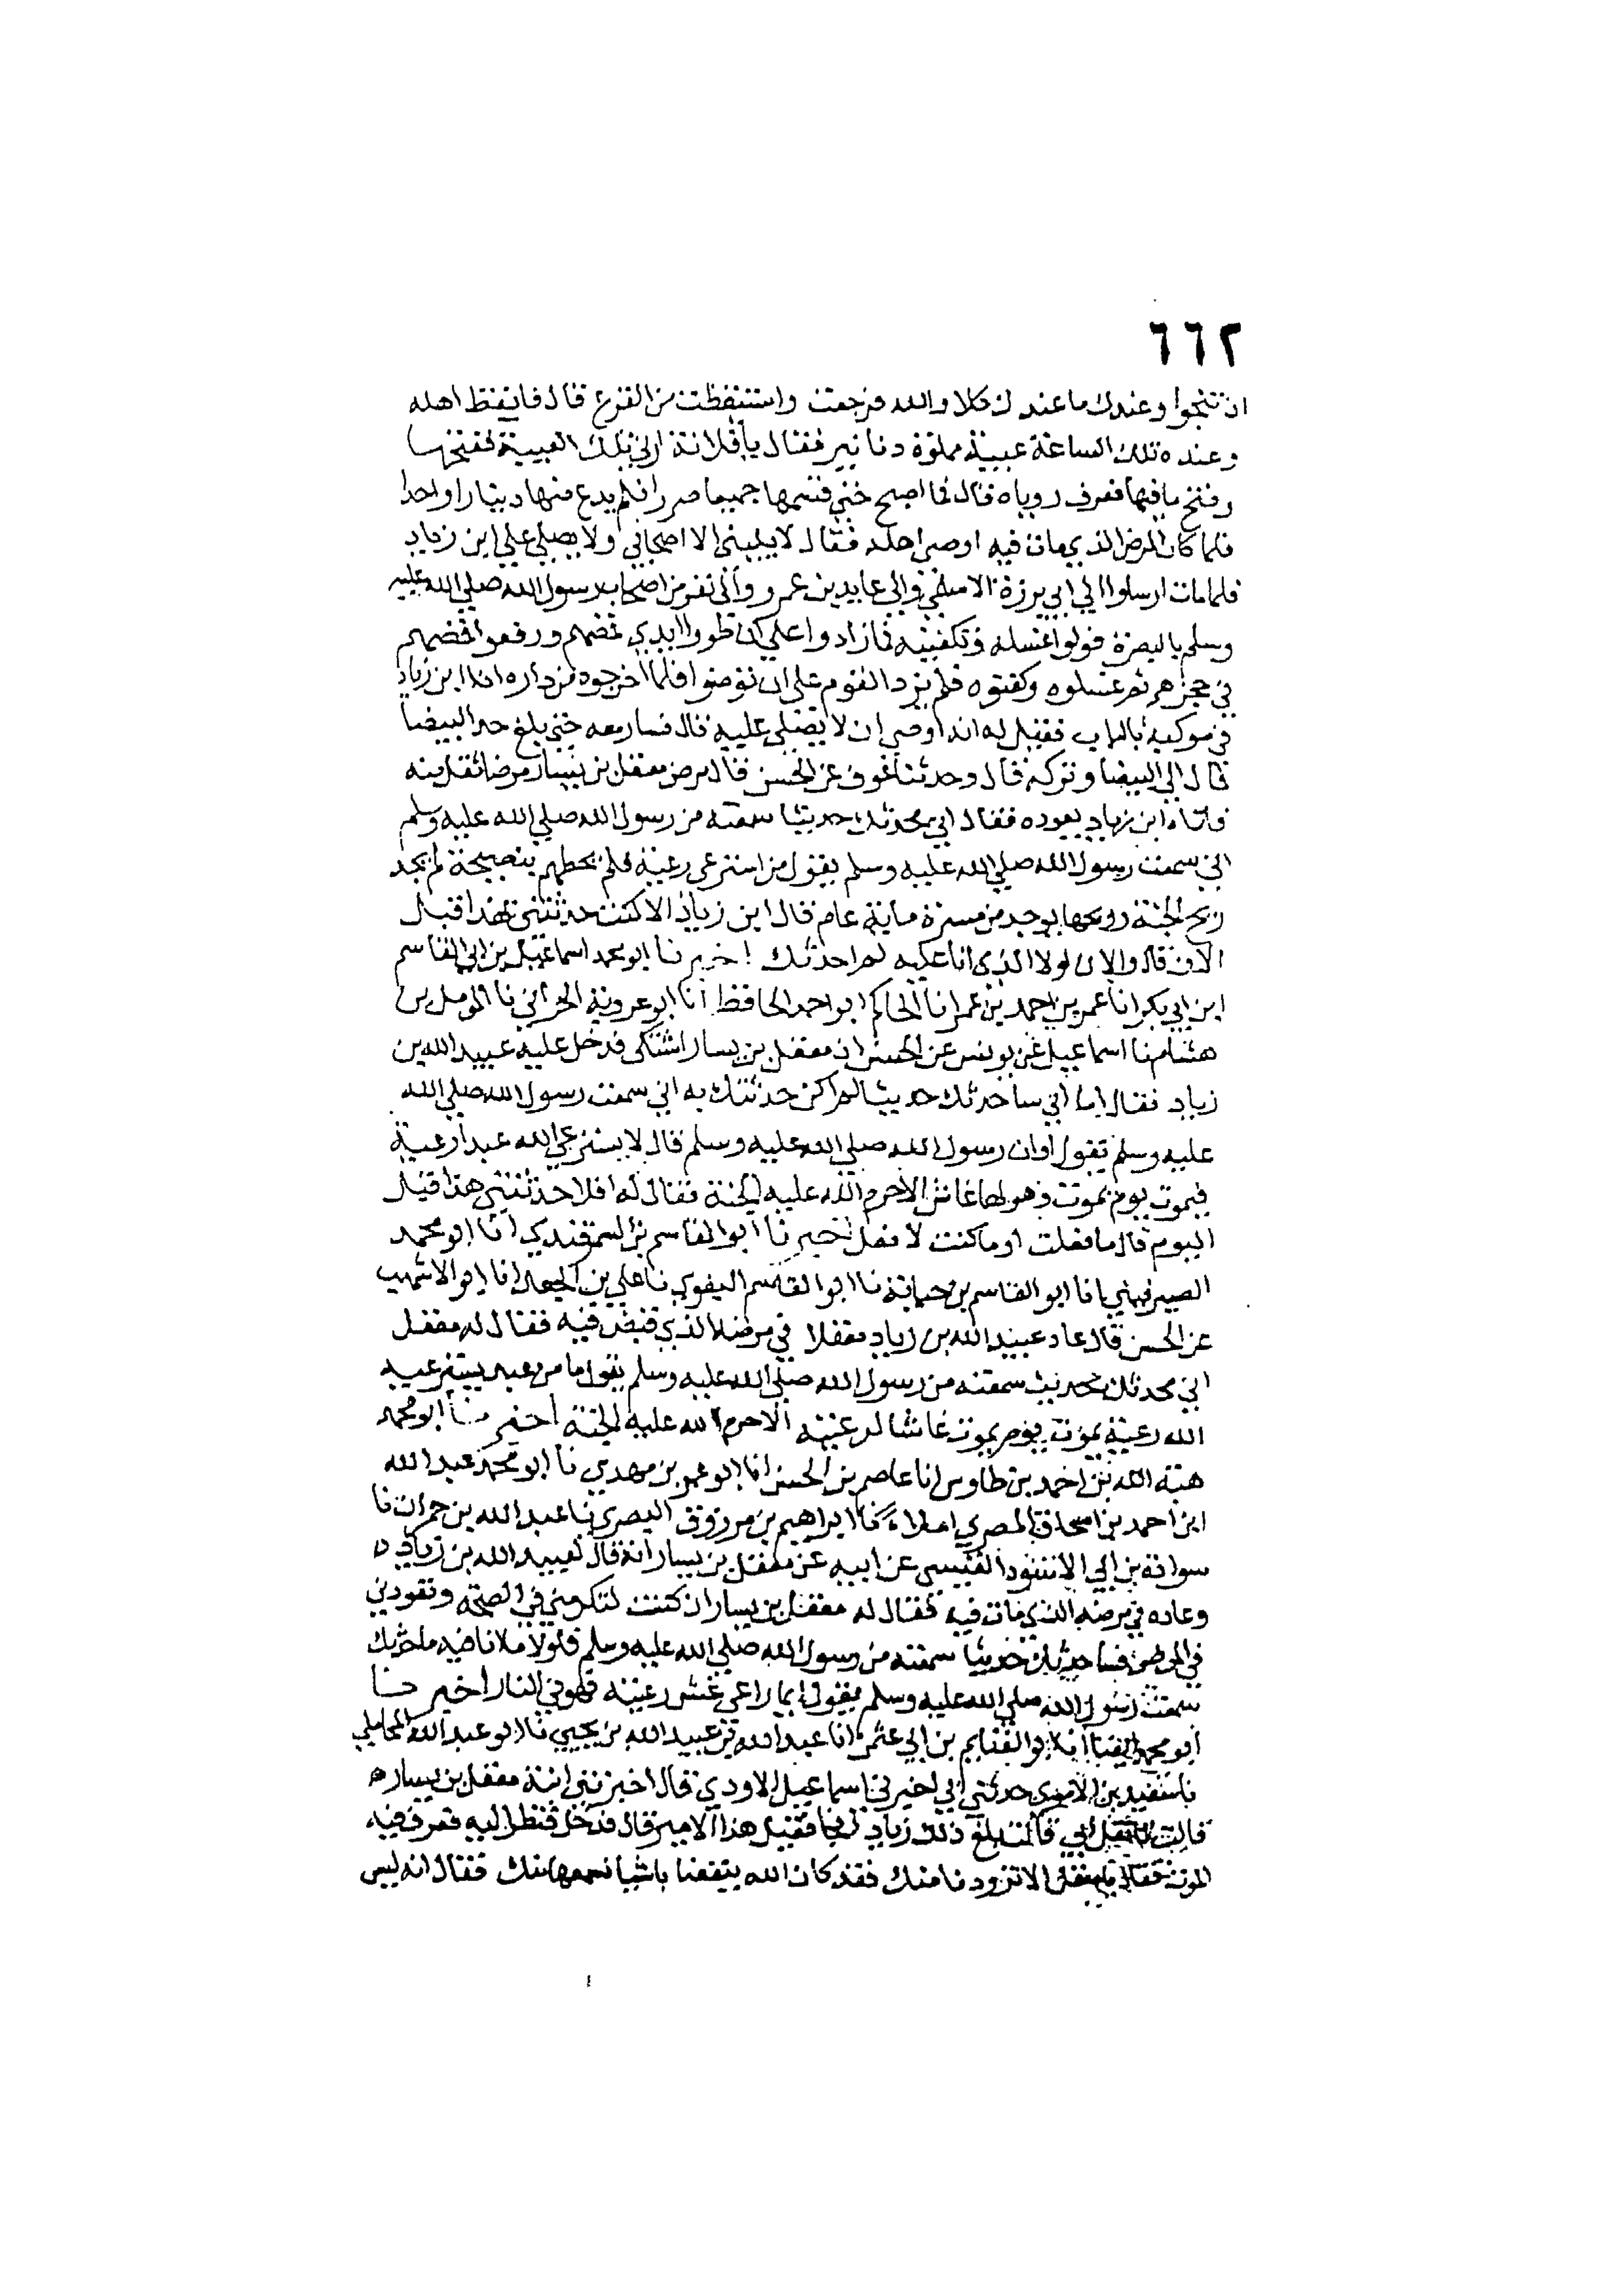 ٦٦٢
ان تنجوا وعندك ما عندك كلا والله فرجعت واستيقظت من الفزع قال فايقظ اهله
وعنده تلك الساعة عيبة مملوة دنانير فقال يا فلانة ارني تلك العيبة ففتحها
وفتح ما فيها فعرف روياه قال فما اصبح حتى قسمها جميعا صررا فلم يدع منها دينارا واحدا
فلما كان المرض الذي مات فيه اوصى اهله فقال لا يليني الا اصحابي ولا يصلي علي ابن زياد
فلما مات ارسلوا الي ابي برزة الاسلمي والى عايد بن عمرو والى نفر من اصحاب رسول الله صلي الله عليه
وسلم بالبصرة فولوا غسله وتكفينه فما زادوا على ان طووا ايدي قمصهم ورفعوا قمصهم
في حجزهم ثم غسلوه وكفنوه فلم يزد القوم على ان توضوا فلما اخرجوه من داره اذا ابن زياد
في موكبه بالباب فقيل له انه اوصى ان لا يصلى عليه قال فسار معه حتى بلغ حد البيضا
قال الي البيضا وتركه قال وحدثنا عوف عن الحسن قال مرض معقل بن يسار مرضا ثقل منه
فاتاه ابن زياد يعوده فقال اني محدثك حديثا سمعته من رسول الله صلي الله عليه وسلم
اني سمعت رسول الله صلي الله عليه وسلم يقول من استرعى رعية فلم يحطهم بنصيحة لم يجد
ريح الجنة وريحها يوجد من مسيرة ماية عام قال ابن زياد الا كنت حدثتني بهذا قبل
الان قال والان لولا الذي انا عليه لم احدثك اخبرنا ابو محمد اسماعيل بن ابي القاسم
ابن ابي بكر انا عمر بن احمد بن عمر انا الحاكم ابو احمد الحافظ انا ابو عروبة الحراني نا المومل بن
هشام نا اسماعيل عن يونس عن الحسن ان معقل بن يسار اشتكى فدخل عليه عبيد الله بن
زياد فقال اما اني ساحدثك حديثا لم اكن حدثتك به اني سمعت رسول الله صلي الله
عليه وسلم يقول او ان رسول الله صلى الله عليه وسلم قال لا يسترعي الله عبدا رعية
فيموت يوم يموت وهو لها غاش الا حرم الله عليه الجنة فقال له افلا حدثتني هذا قبل
اليوم قال ما فعلت او ما كنت لافعل اخبرنا ابو القاسم بن السمرقندي انا ابو محمد
الصيرفيني انا ابو القاسم بن حبابة نا ابو القاسم البغوي نا علي بن الجعد انا ابو الاشهب
عن الحسن قال عاد عبيد الله بن زياد معقلا في مرضه الذي قبض فيه فقال له معقل
اني محدثك بحديث سمعته من رسول الله صلى الله عليه وسلم يقول ما من عبد يسترعيه
الله رعية يموت يوم يموت غاشا لرعيته الا حرم الله عليه الجنة اخبرنا ابو محمد
هبة الله بن احمد بن طاوس انا عاصم بن الحسن انا ابو عمر بن مهدي نا ابو محمد عبد الله
ابن احمد بن اسحاق المصري املاء نا ابراهيم بن مرزوق البصري نا عبد الله بن حمران نا
سوادة بن ابي الاسود القيسي عن ابيه عن معقل بن يسار انه قال لعبيد الله بن زياد
وعاده في مرضه الذي مات فيه فقال له معقل بن يسار ان كنت لتكرمني في الصحة وتعودني
في المرض فساحدثك حديثا سمعته من رسول الله صلي الله عليه وسلم فلولا ما انا فيه ما حدثتك
سمعت رسول الله صلي الله عليه وسلم يقول ايما راعي غش رعيته فهو في النار اخبرنا
ابو محمد ايضا انا ابو الغنايم بن ابي عثمن انا عبد الله بن عبيد الله بن يحيي نا ابو عبد الله المحاملي
نا سعيد بن الاموي حدثني ابي اخبرني اسماعيل الاودي قال اخبرتني ابنة معقل بن يسار
قالت لما ثقل ابي قالت بلغ ذلك زياد فجا فقيل هذا الامير قال فدخل فنظر اليه فعرف فيه
الموت فقال يا معقل الا تزودنا منك فقد كان الله ينفعنا باشيا نسمعها منك فقال انه ليس